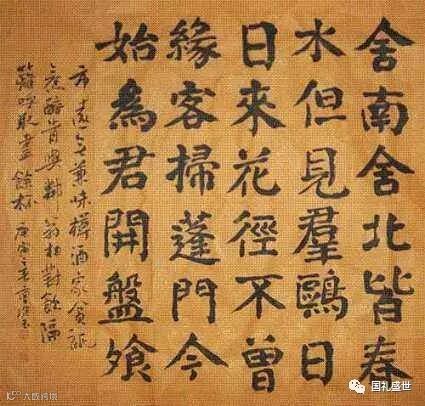 舍南舍北皆春
水但見羣鷗日
日來花徑不曾
緣客掃蓬門今
始為君開盤飧
市遠无兼味樽酒家貧祗
舊醅肯與鄰翁相對飲隔
籬呼取盡餘杯 庚寅
国礼盛世